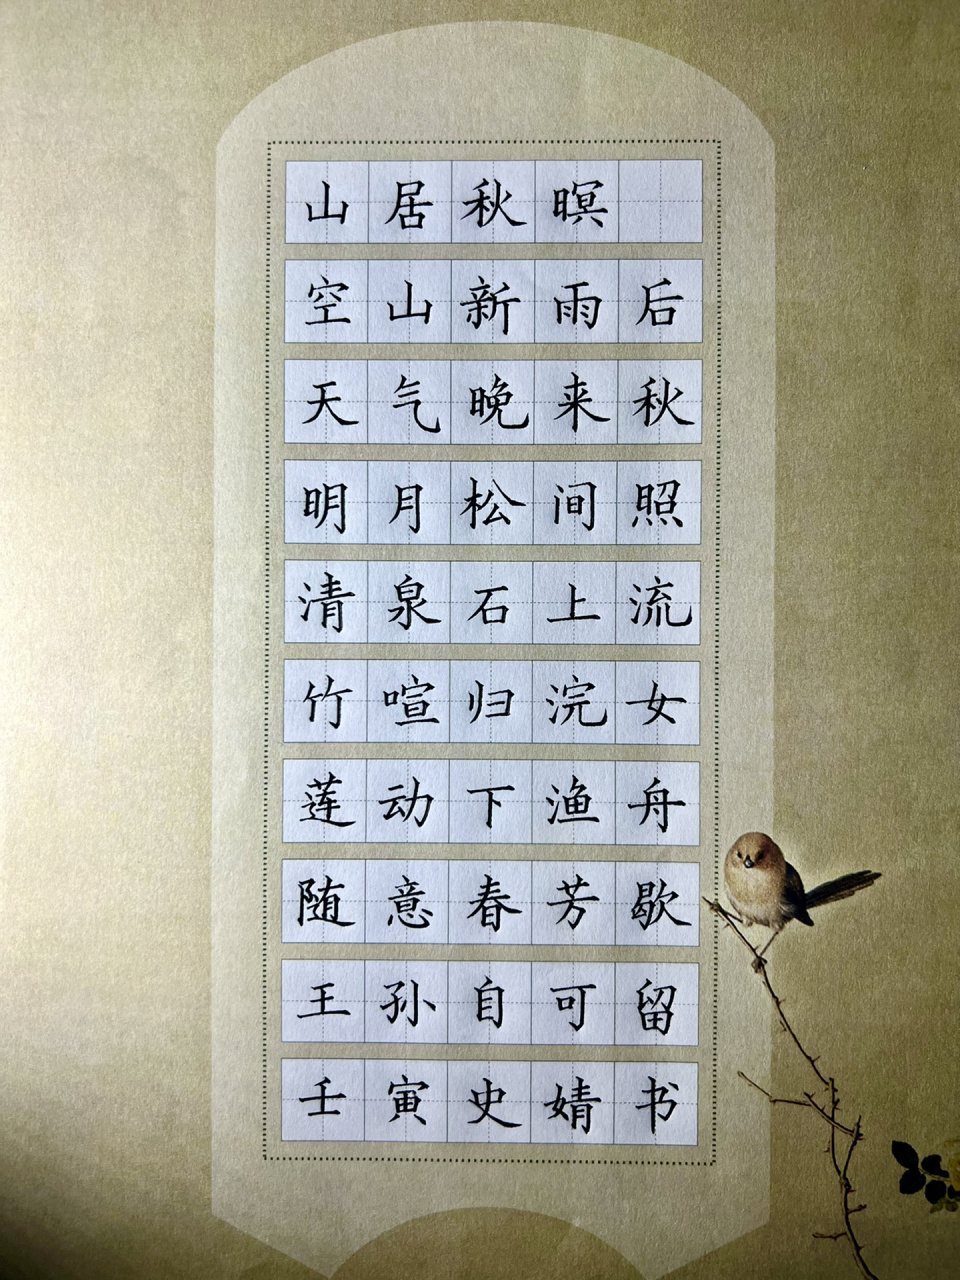 山居秋暝
空山新雨后
天气晚来秋
明月松间照
清泉石上流
竹喧归浣女
莲动下渔舟
随意春芳歇
王孙自可留
壬寅史婧书